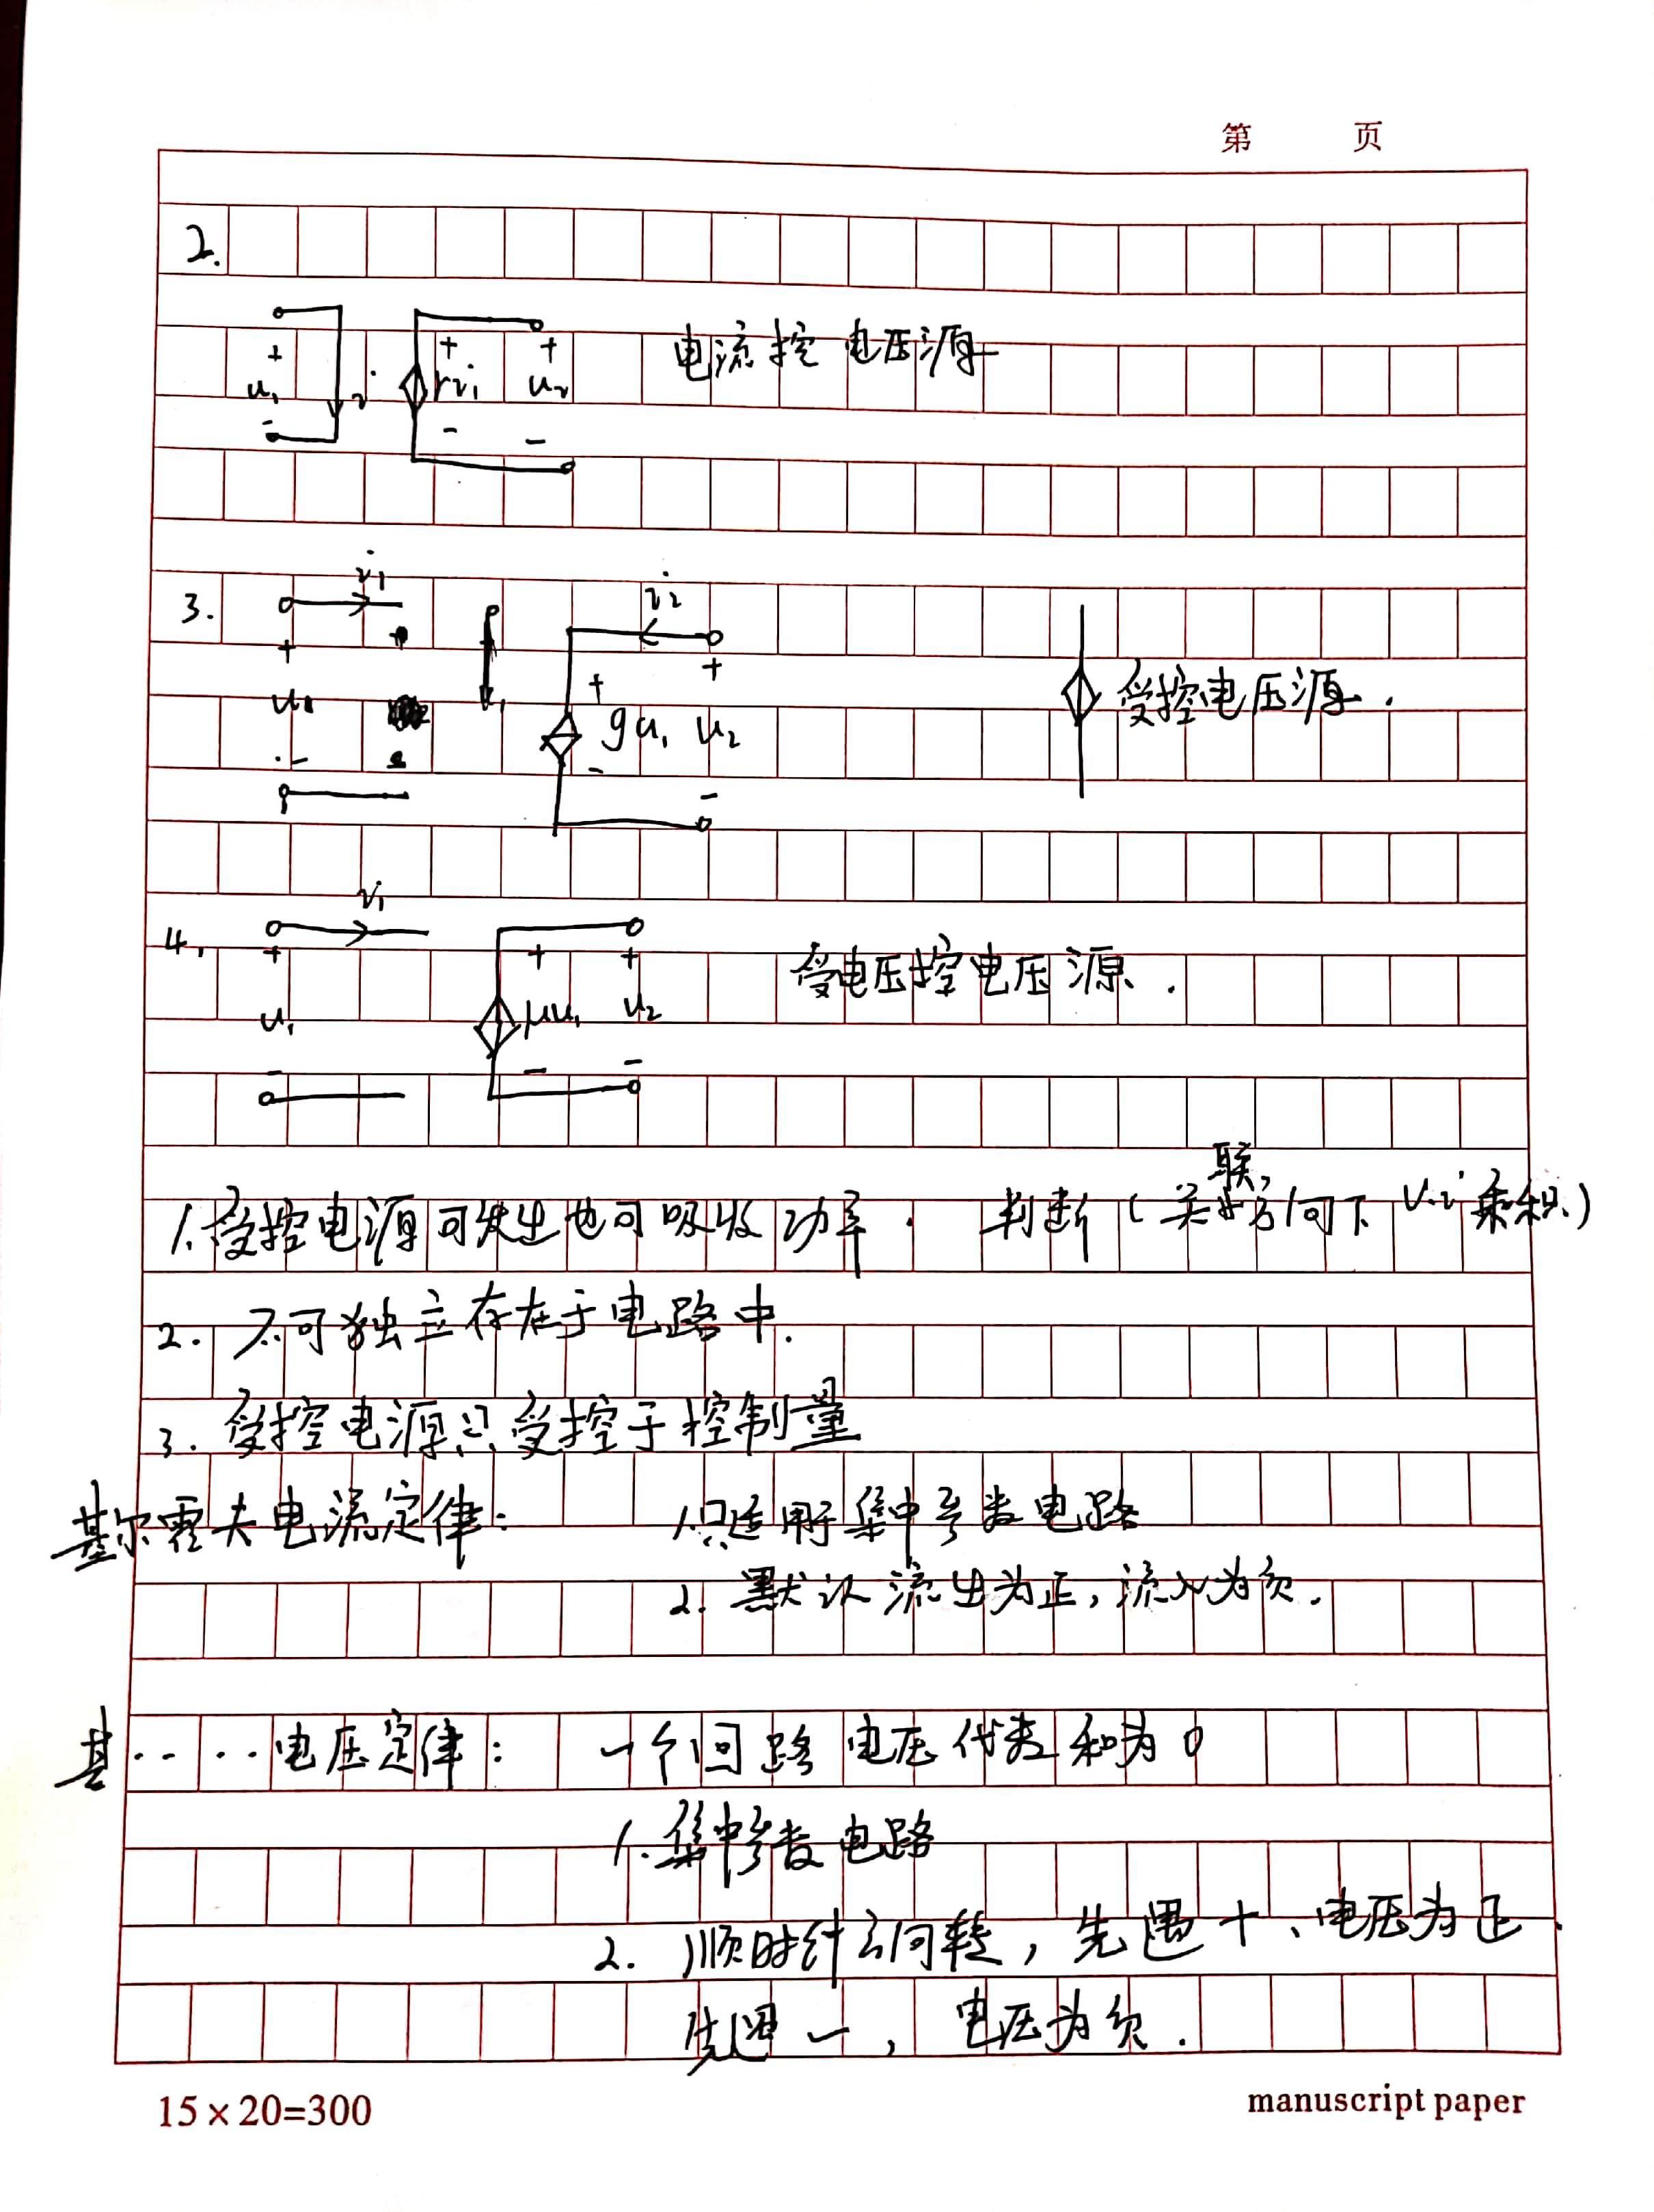 第 页
2.
+ + + 电流控电压源
u₁ i ri₁ u₂
- - -
3. i₁ i₂
+ + +
u₁ i₁ gu₁ u₂ 受控电压源.
- - -
4. i₁
+ + + 受电压控电压源.
u₁ μu₁ u₂
- - -
1.受控电源可发出也可吸收功率. 判断(关联方向下 u.i 乘积)
2. 不可独立存在于电路中.
3. 受控电源只受控于控制量
基尔霍夫电流定律: 1.只适用于集中参数电路
2. 默认流出为正,流入为负.
基·· ··电压定律: 一个回路电压代数和为0
1.集中参数电路
2. 顺时针方向转,先遇+、电压为正.
先遇-,电压为负.
15×20=300 manuscript paper